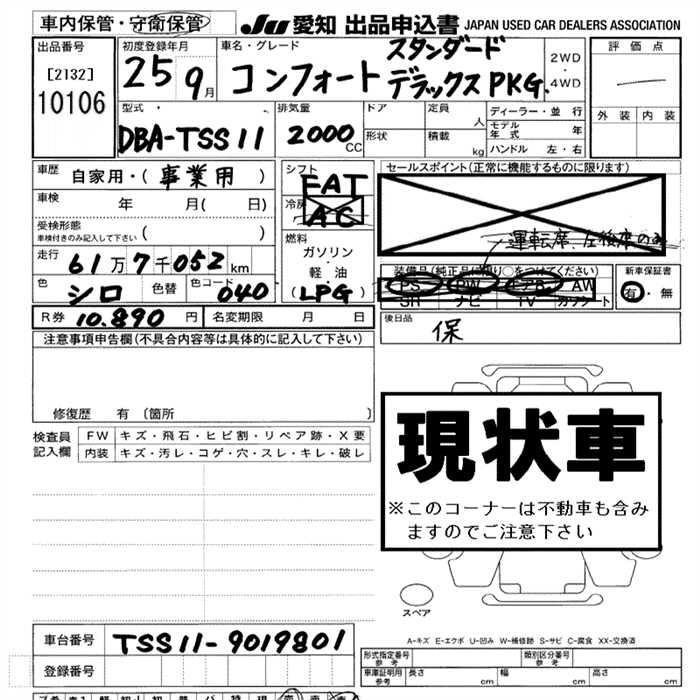 車内保管・守衛保管
JU 愛知 出品申込書 JAPAN USED CAR DEALERS ASSOCIATION
出品番号
[2132]
10106
初度登録年月
25 9月
車名・グレード
コンフォート スタンダード
デラックスPKG.
2WD
・
4WD
評価点
外装 内装
型式・
DBA-TSS11
排気量
2000CC
ドア
形状
定員 人
積載 kg
ディーラー・並行
モデル年式 年
ハンドル 左・右
車歴
自家用・(事業用)
車検 年 月( 日)
受検形態
車検付きのみ記入して下さい ( )
走行 61万7千052km
色 シロ 色替 色コード 040
シフト
FAT
冷房
AC
燃料
ガソリン・
軽油
(LPG)
セールスポイント(正常に機能するものに限ります)
運転席、左後席のみ
装備品(純正品に限り○をつけてください)
PS PW エアB AW
SR ナビ TV カワシート
新車保証書
有・無
R券 10.890 円 名変期限 月 日
後日品
保
注意事項申告欄(不具合内容等は具体的に記入して下さい)
修復歴 有 〔箇所 〕
検査員
記入欄
FW キズ・飛石・ヒビ割・リペア跡・X要
内装 キズ・汚レ・コゲ・穴・スレ・キレ・破レ
現状車
※このコーナーは不動車も含み
ますのでご注意下さい
スペア
A-キズ E-エクボ U-凹み W-補修跡 S-サビ C-腐食 XX-交換済
車台番号 TSS11-9019801
登録番号
形式指定番号
参考
類別区分番号
参考
車庫証明用
参考
長さ cm 幅 cm 高さ cm